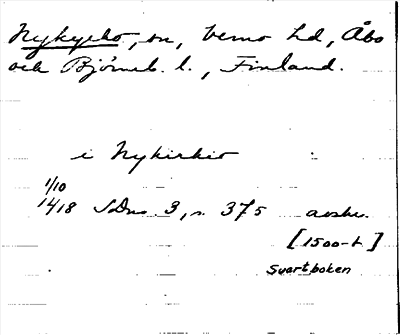 Nykyrko, sn, Vemo hd, Åbo
och Björneb. l., Finland.
i Nykirkio
1/10
1418 SDns 3, s. 375 avskr.
[1500-t]
Svartboken